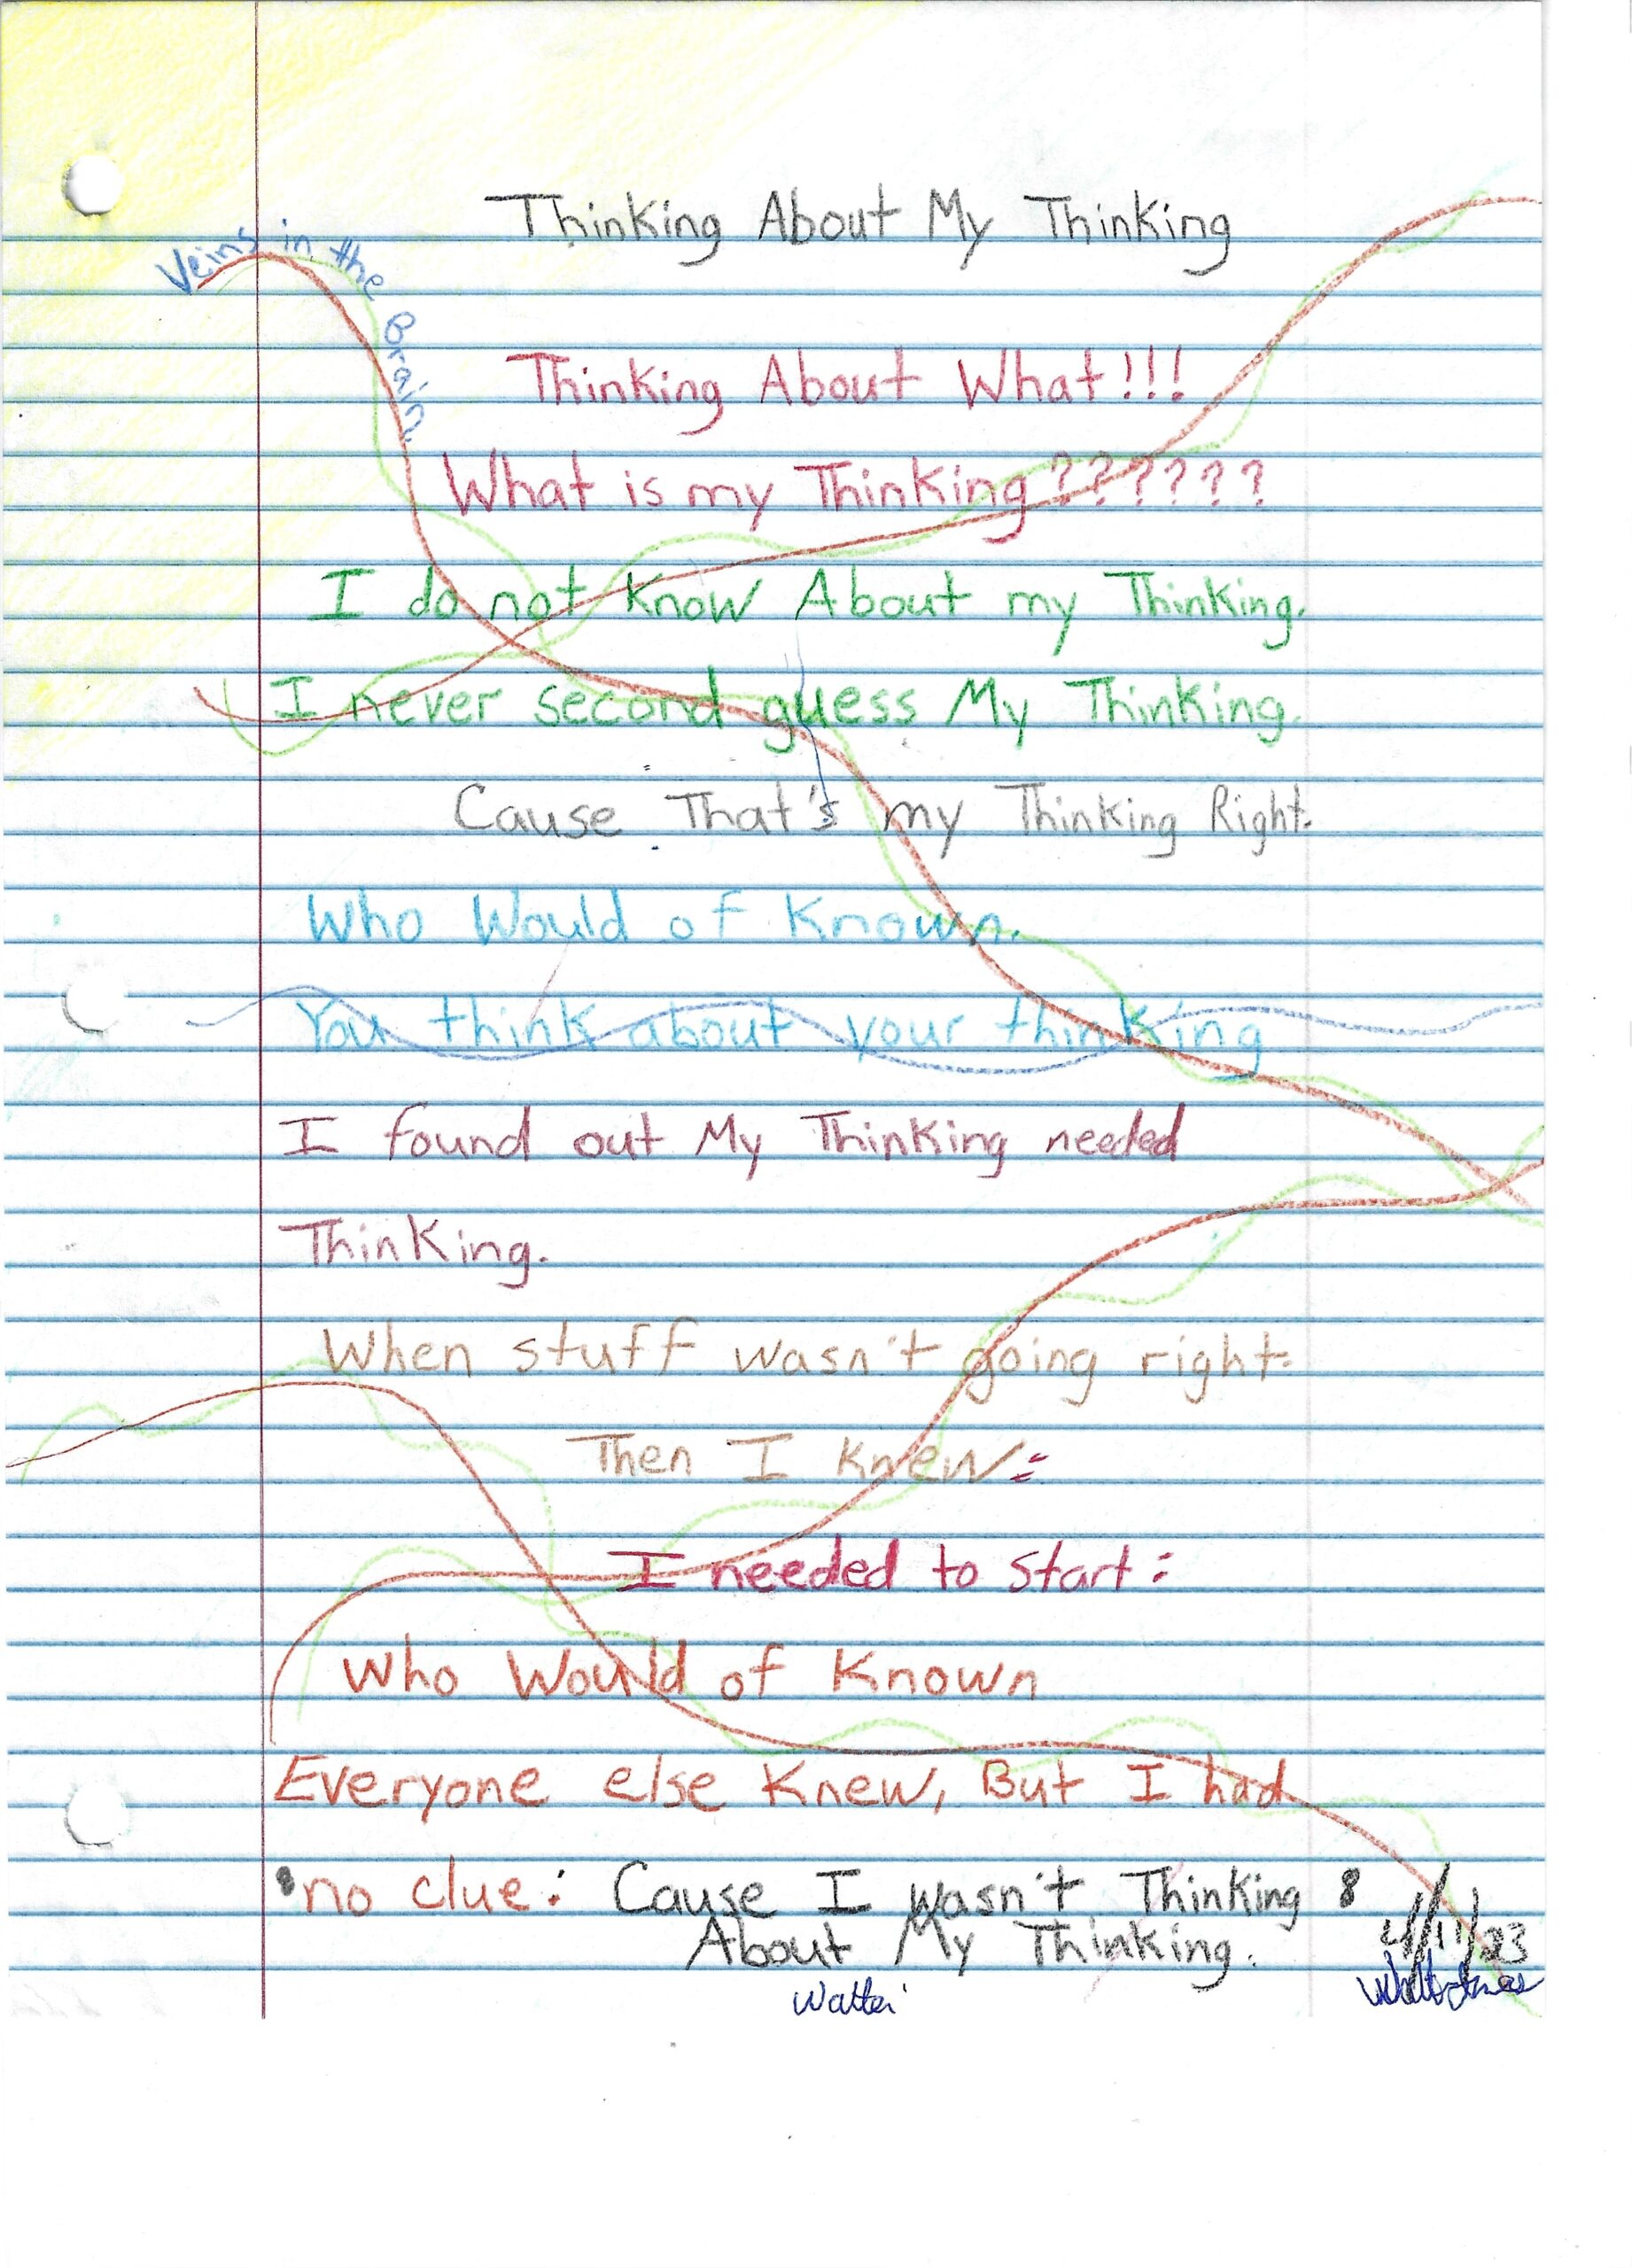 Thinking About My Thinking
Veins in the Brain.
Thinking About What!!!
What is my Thinking??????
I do not Know About my Thinking.
I never second guess My Thinking.
Cause That's my Thinking Right.
Who Would of Known.
You think about your thinking
I found out My Thinking needed
Thinking.
When stuff wasn't going right.
Then I Knew:
I needed to start:
Who Would of Known
Everyone else Knew, But I had
no clue: Cause I wasn't Thinking
About My Thinking.
4/11/23